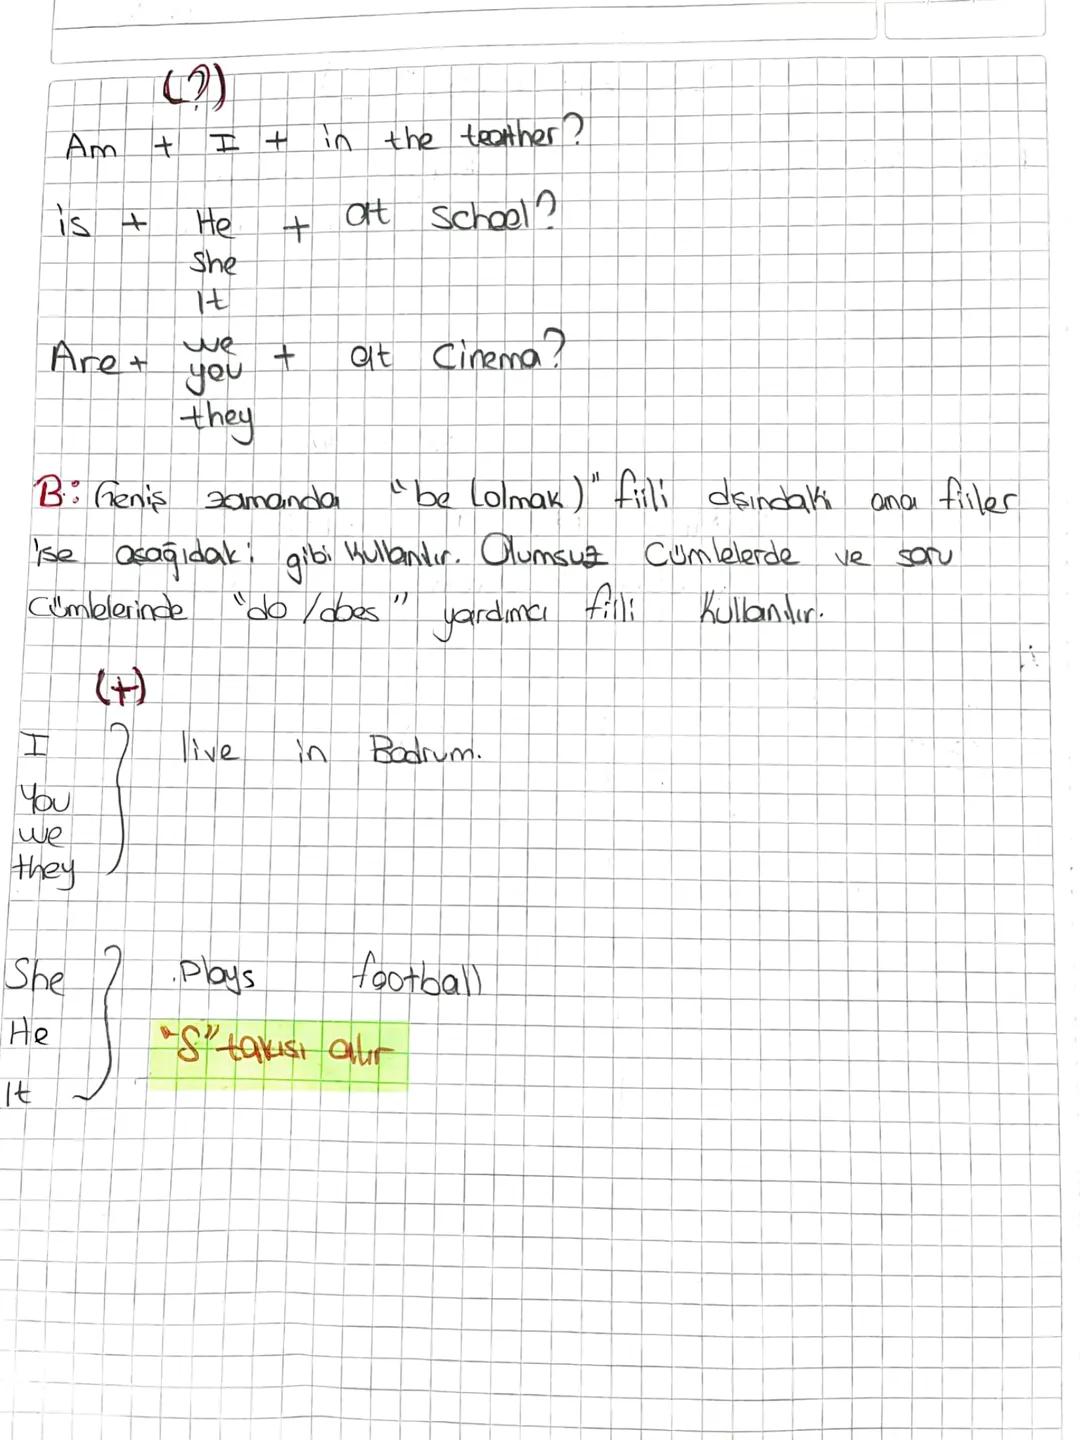 (?)
Am + I + in the teather?
is + He + at school?
She
It
Are + we + at Cinema?
you
they
B: Geniş zamanda "be (olmak)" fiili dışındaki ana fiiler
ise aşağıdaki gibi kullanılır. Olumsuz Cümlelerde ve soru
cümlelerinde "do / does" yardımcı fiili kullanılır.
(+)
I live in Bodrum.
You
we
they
She plays football
He "S" takısı alır
It